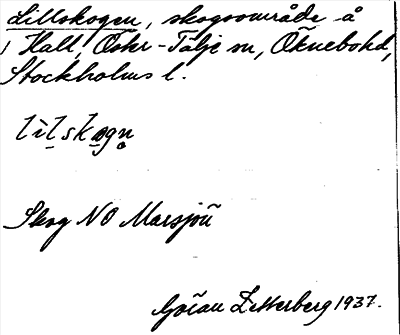 Lillskogen, skogsområde å
Hall, Öster-Tälje sn, Öknebo hd,
Stockholms l.
lìl̠skog̠n̥
Skog NO Marsjön
Göran Zetterberg 1937.